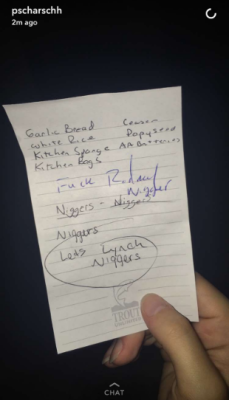 pscharschh
2m ago
Garlic Bread
White Rice
Kitchen Sponge AA Batteries
Kitchen Bags
Fuck
Nigger
Niggers - Niggers
Niggers
Lets Lynch
Niggers
TROUT
CHAT